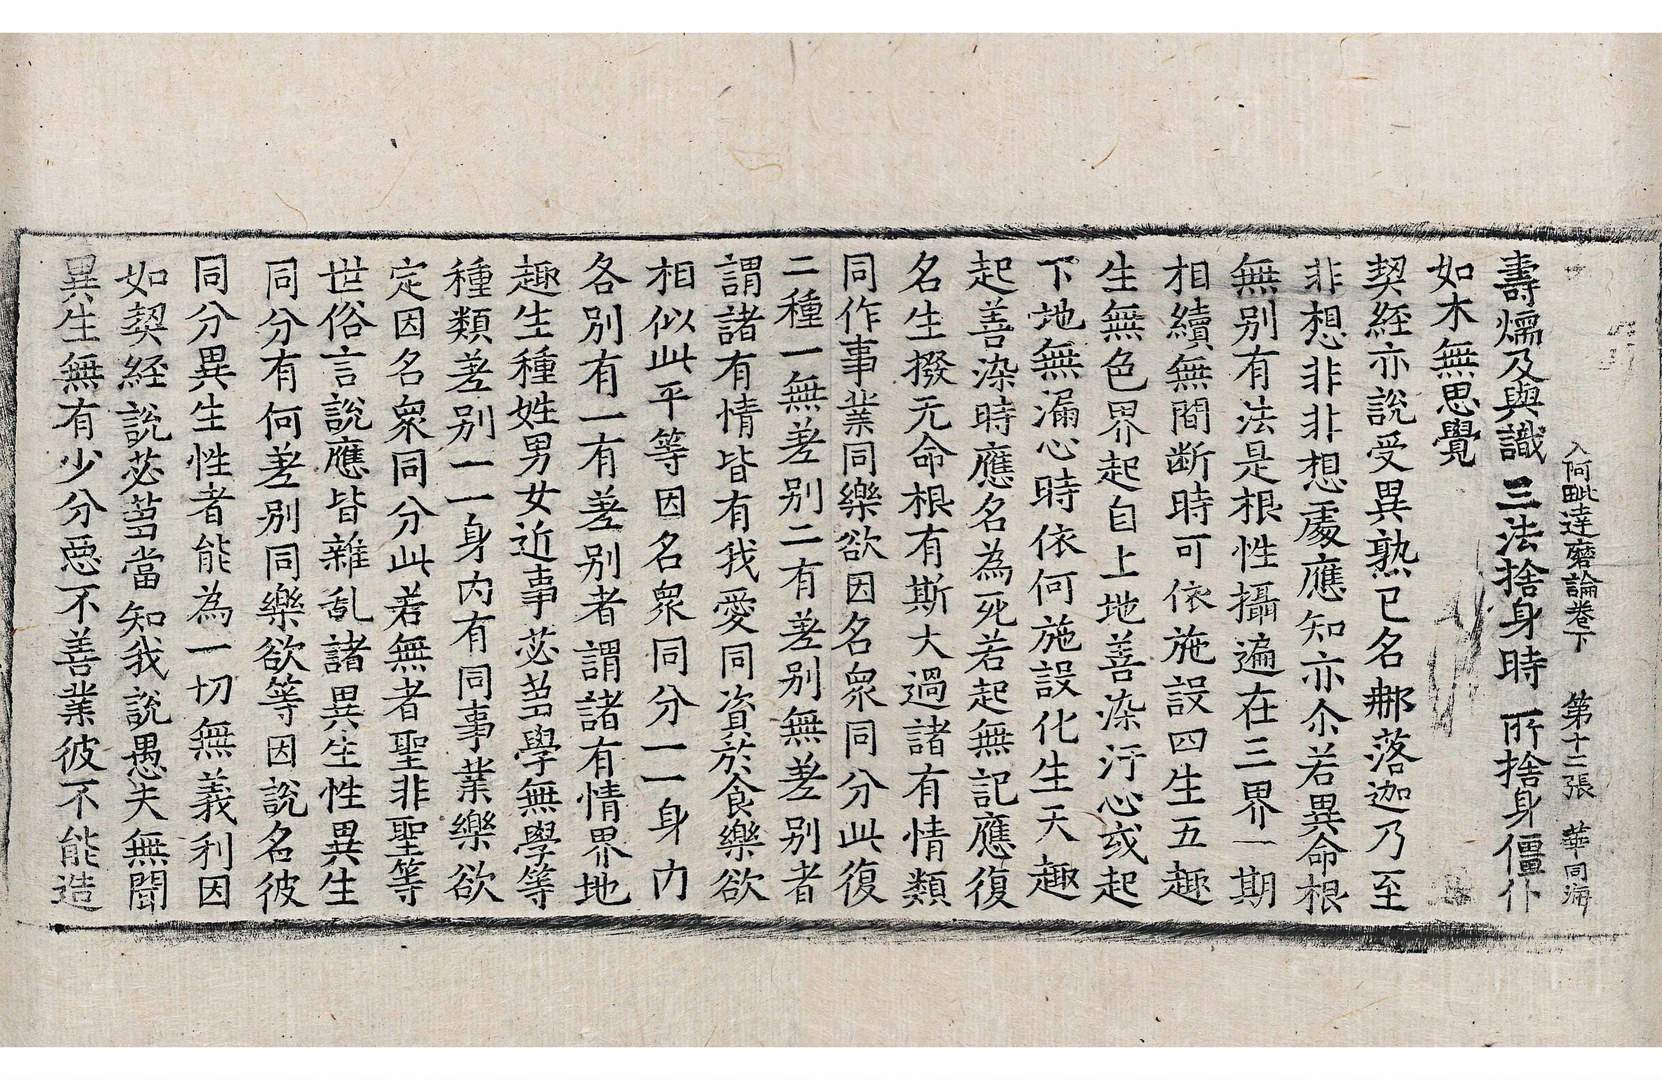 入阿毗達磨論卷下 第十二張 華同海
壽煗及與識 三法捨身時 所捨身僵仆
如木無思覺
契經亦說受異熟已名挪落迦乃至
非想非非想處應知亦尒若異命根
無別有法是根性攝遍在三界一期
相續無間断時可依施設四生五趣
生無色界起自上地善染汙心或起
下地無漏心時依何施設化生天趣
起善染時應名為死若起無記應復
名生撥无命根有斯大過諸有情類
同作事業同樂欲因名衆同分此復
二種一無差別二有差別無差別者
謂諸有情皆有我愛同資於食樂欲
相似此平等因名衆同分一一身內
各別有一有差別者謂諸有情界地
趣生種姓男女近事苾芻學無學等
種類差別一一身內有同事業樂欲
定因名衆同分此若無者聖非聖等
世俗言說應皆雜乱諸異生性異生
同分有何差別同樂欲等因說名彼
同分異生性者能為一切無義利因
如契經說苾芻當知我說愚夫無聞
異生無有少分惡不善業彼不能造